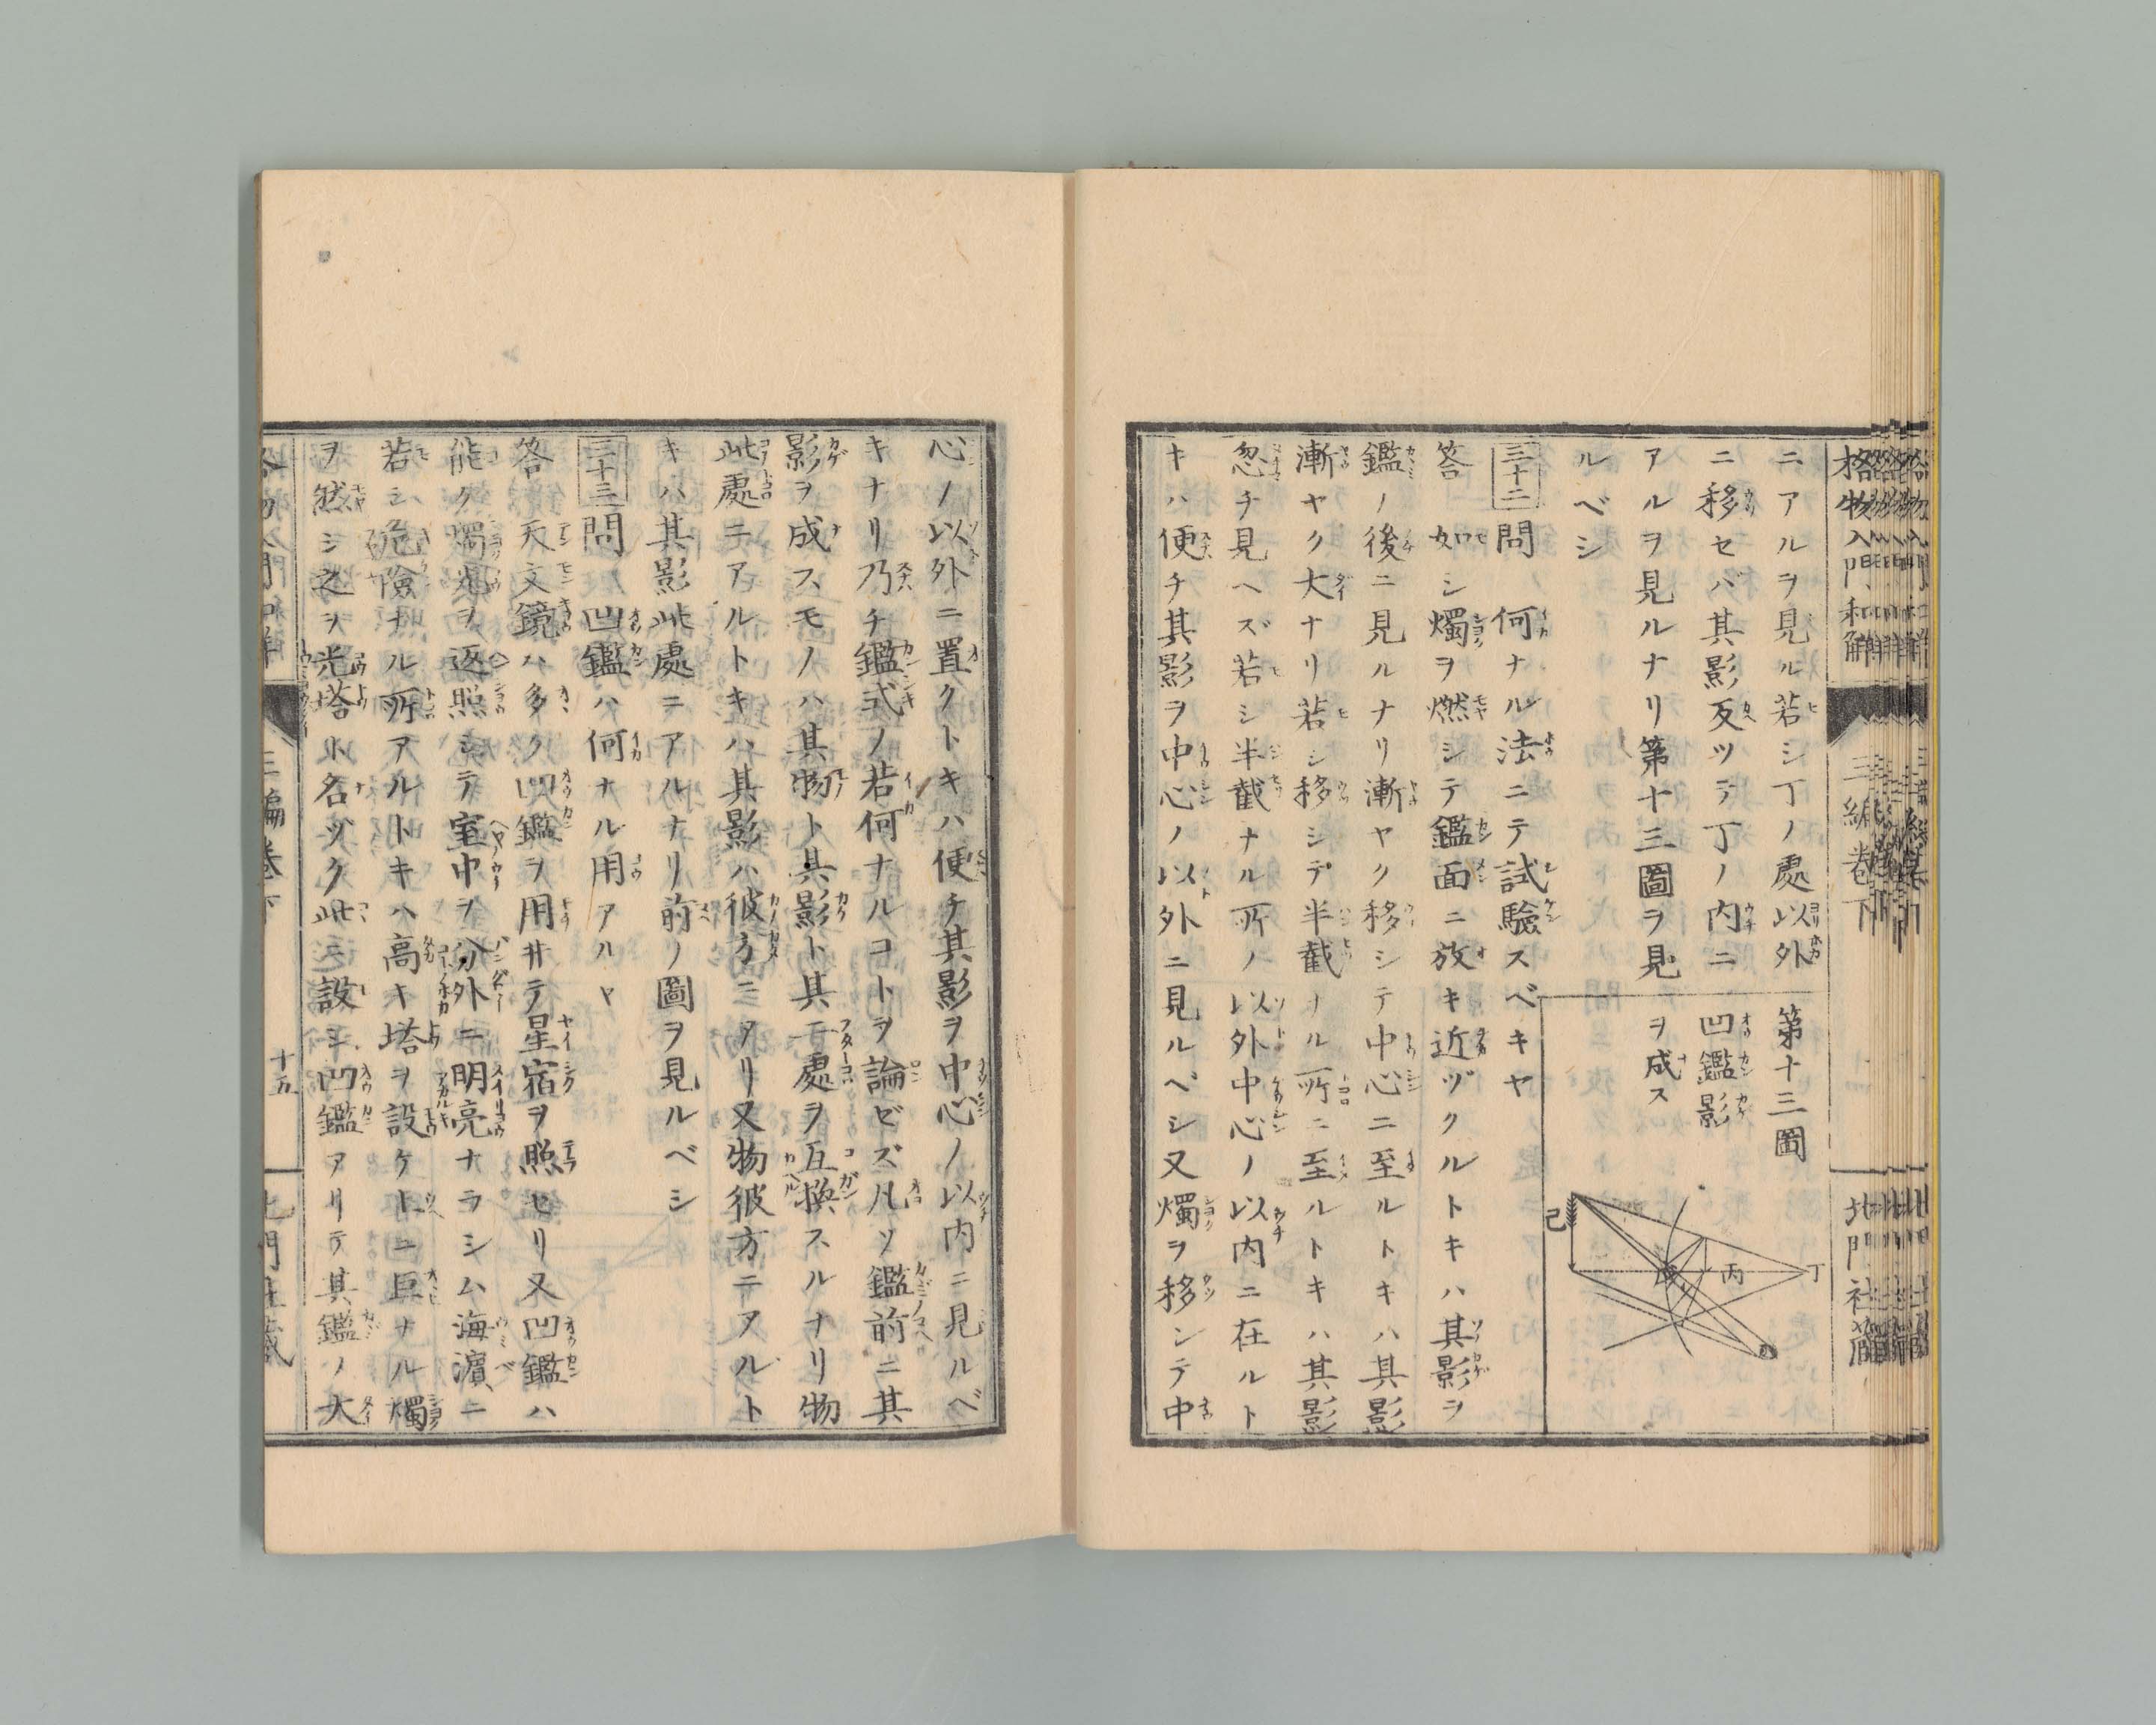 格物入門和解 三編巻下 北門社藏
ニアルヲ見ル若シ丁ノ處以外
ニ移セバ其影反ツテ丁ノ内ニ
アルヲ見ルナリ第十三圖ヲ見
ルベシ
第十三圖
凹鑑影
ヲ成ス
丁
丙
己
三十二問 何ナル法ニテ試驗スベキヤ
答 如シ燭ヲ燃シテ鑑面ニ放キ近ヅクルトキハ其影ヲ
鑑ノ後ニ見ルナリ漸ヤク移シテ中心ニ至ルトキハ其影
漸ヤク大ナリ若シ移シテ半截ナル所ニ至ルトキハ其影
忽チ見ヘズ若シ半截ナル所ノ以外中心ノ以内ニ在ルト
キハ便チ其影ヲ中心ノ以外ニ見ルベシ又燭ヲ移シテ中
心ノ以外ニ置クトキハ便チ其影ヲ中心ノ以内ニ見ルベ
キナリ乃チ鑑式ノ若何ナルコトヲ論ゼズ凡ソ鑑前ニ其
影ヲ成スモノハ其物ト其影ト其二處ヲ互換スルナリ物
此處ニアルトキハ其影ハ彼方ニアリ又物彼方ニアルト
キハ其影此處ニアルナリ前ノ圖ヲ見ルベシ
三十三問 凹鑑ハ何ナル用アルヤ
答 天文鏡ハ多ク凹鑑ヲ用井テ星宿ヲ照セリ又凹鑑ハ
能ク燭光ヲ返照シテ室中ヲ分外ニ明亮ナラシム海濵ニ
若シ危險ナル所アルトキハ高キ塔ヲ設ケ上ニ巨ナル燭
ヲ然シ之ヲ光塔ト名ヅク此ニ設シ凹鑑アリテ其鑑ノ大
三編巻下 十五